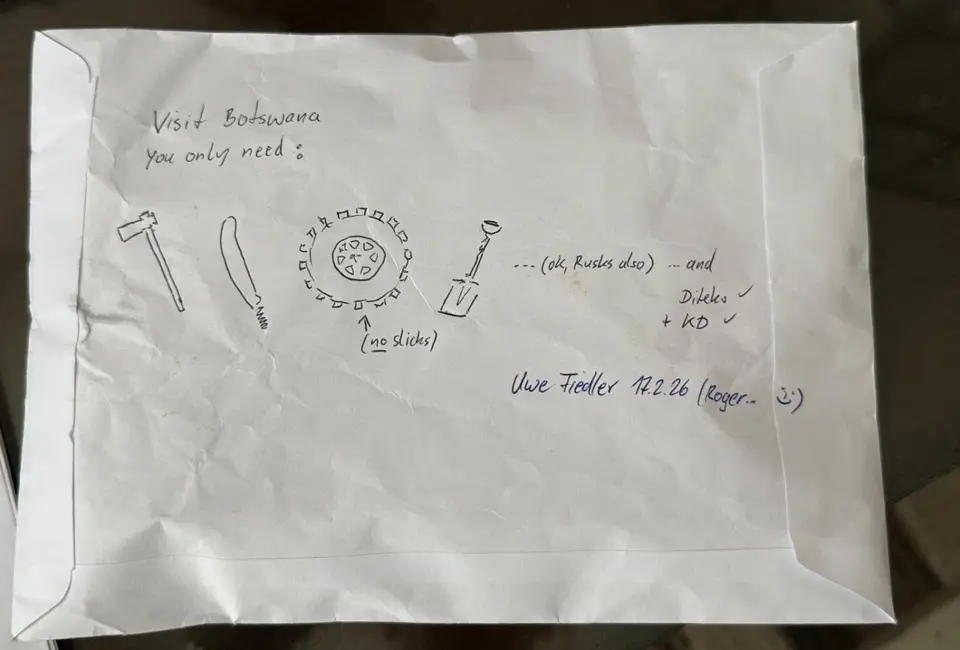 Visit Botswana
you only need :
... (ok, Rusks also) ... and
Diteko ✓
+ KD ✓
(no slicks)
Uwe Fiedler 17.2.26 (Roger...